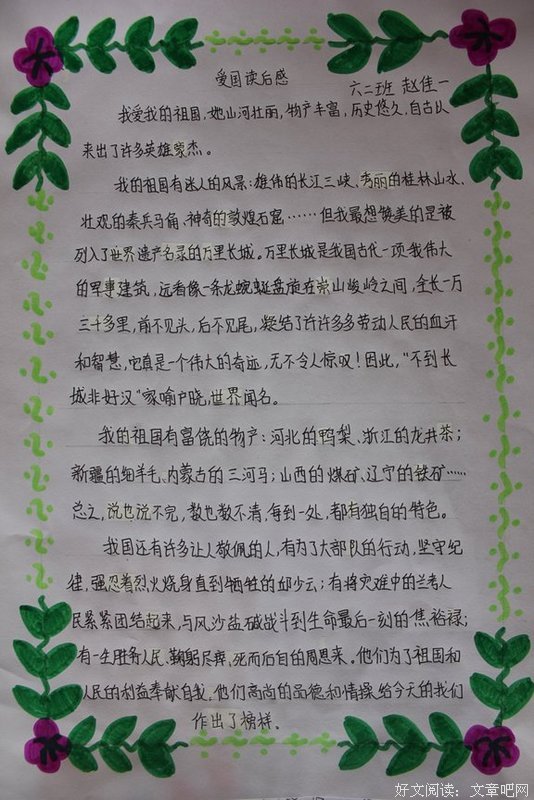 爱国读后感
六二班 赵佳一
我爱我的祖国,她山河壮丽,物产丰富,历史悠久,自古以
来出了许多英雄豪杰。
我的祖国有迷人的风景:雄伟的长江三峡、秀丽的桂林山水、
壮观的秦兵马俑、神奇的敦煌石窟……但我最想赞美的是被
列入了世界遗产名录的万里长城。万里长城是我国古代一项我伟大
的军事建筑,远看像一条龙蜿蜒盘旋在崇山峻岭之间,全长一万
三千多里,前不见头,后不见尾,凝结了许许多多劳动人民的血汗
和智慧,它真是一个伟大的奇迹,无不令人惊叹!因此,“不到长
城非好汉”家喻户晓,世界闻名。
我的祖国有富饶的物产:河北的鸭梨、浙江的龙井茶;
新疆的细羊毛、内蒙古的三河马;山西的煤矿、辽宁的铁矿……
总之,说也说不完,数也数不清,每到一处,都有独自的特色。
我国还有许多让人敬佩的人,有为了大部队的行动,坚守纪
律,强忍着烈火烧身直到牺牲的邱少云;有将灾难中的兰考人
民紧紧团结起来,与风沙盐碱战斗到生命最后一刻的焦裕禄;
有一生服务人民、鞠躬尽瘁,死而后已的周恩来。他们为了祖国和
人民的利益奉献自我,他们高尚的品德和情操给今天的我们
作出了榜样。
好文阅读:文章吧网